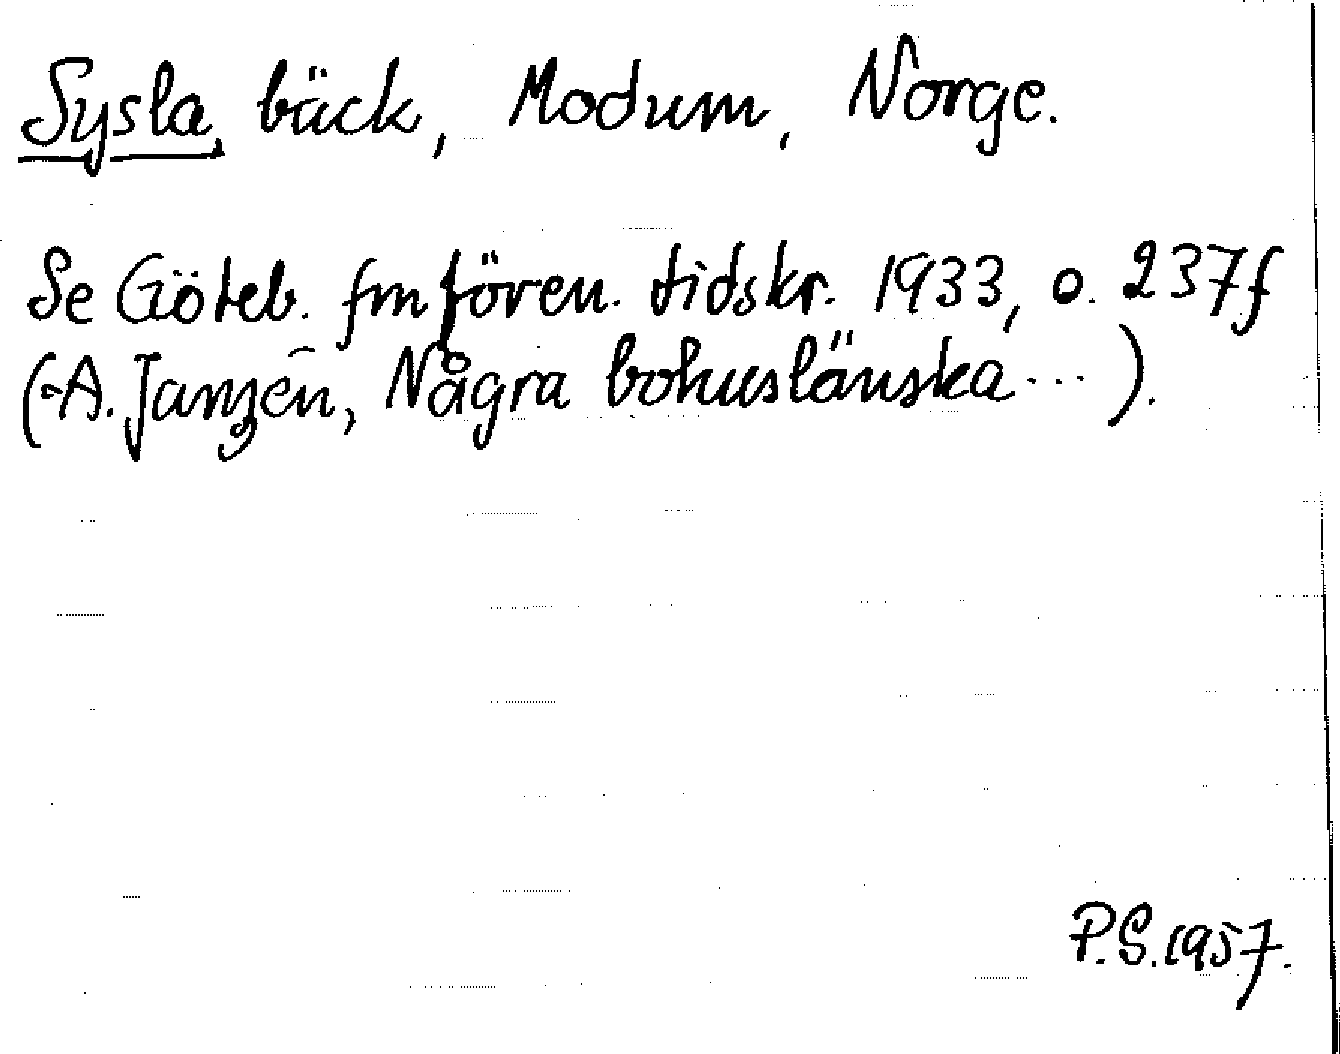 Sysla, bäck, Modum, Norge.
Se Göteb. fmfören. tidskr. 1933, o. 237f
(A. Janzén, Några bohuslänska...).
P.S. 1957.